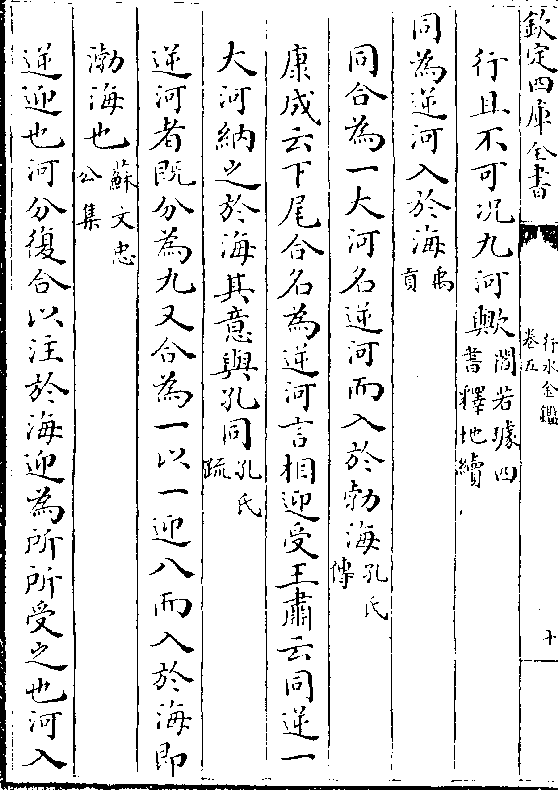 欽定四庫全書
行水金鑑
卷五
十
行且不可况九河歟閻若璩四書釋地續
同為逆河入於海禹貢
同合為一大河名逆河而入於勃海孔氏傳
康成云下尾合名為逆河言相迎受王肅云同逆一
大河納之於海其意與孔同孔氏疏
逆河者既分為九又合為一以一迎八而入於海即
渤海也蘇文忠公集
逆迎也河分復合以注於海迎為所所受之也河入